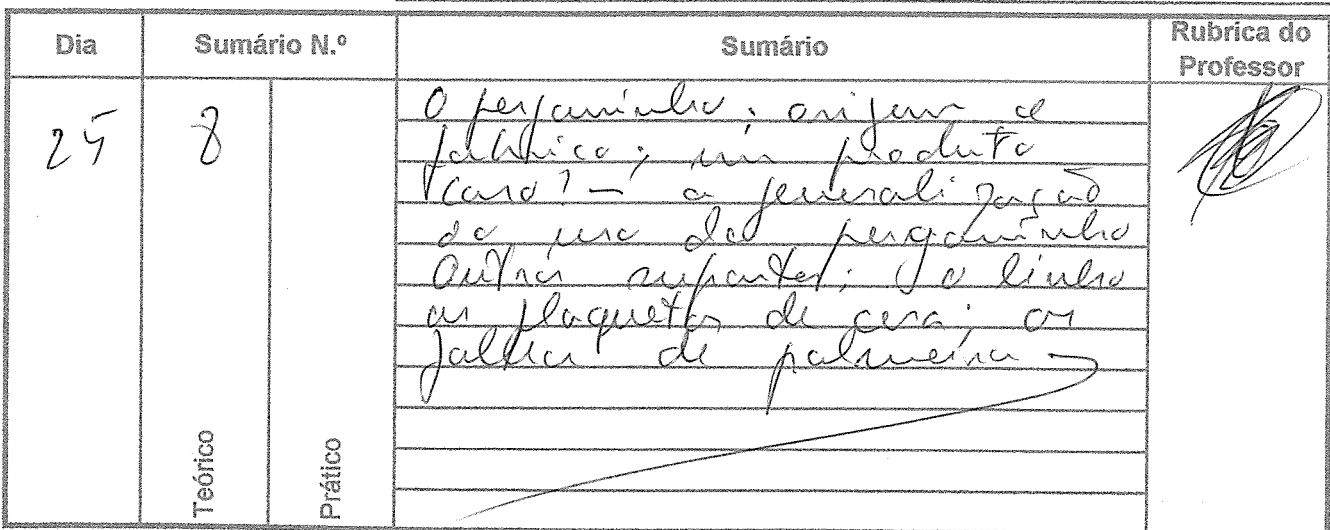 Dia
Sumário N.º
Sumário
Rubrica do
Professor
25
8
O pergaminho: origem e
fabrico; um produto
caro? – a generalização
do uso do pergaminho
Outros suportes: o linho
as plaquetas de cera; as
folhas de palmeira
Teórico
Prático